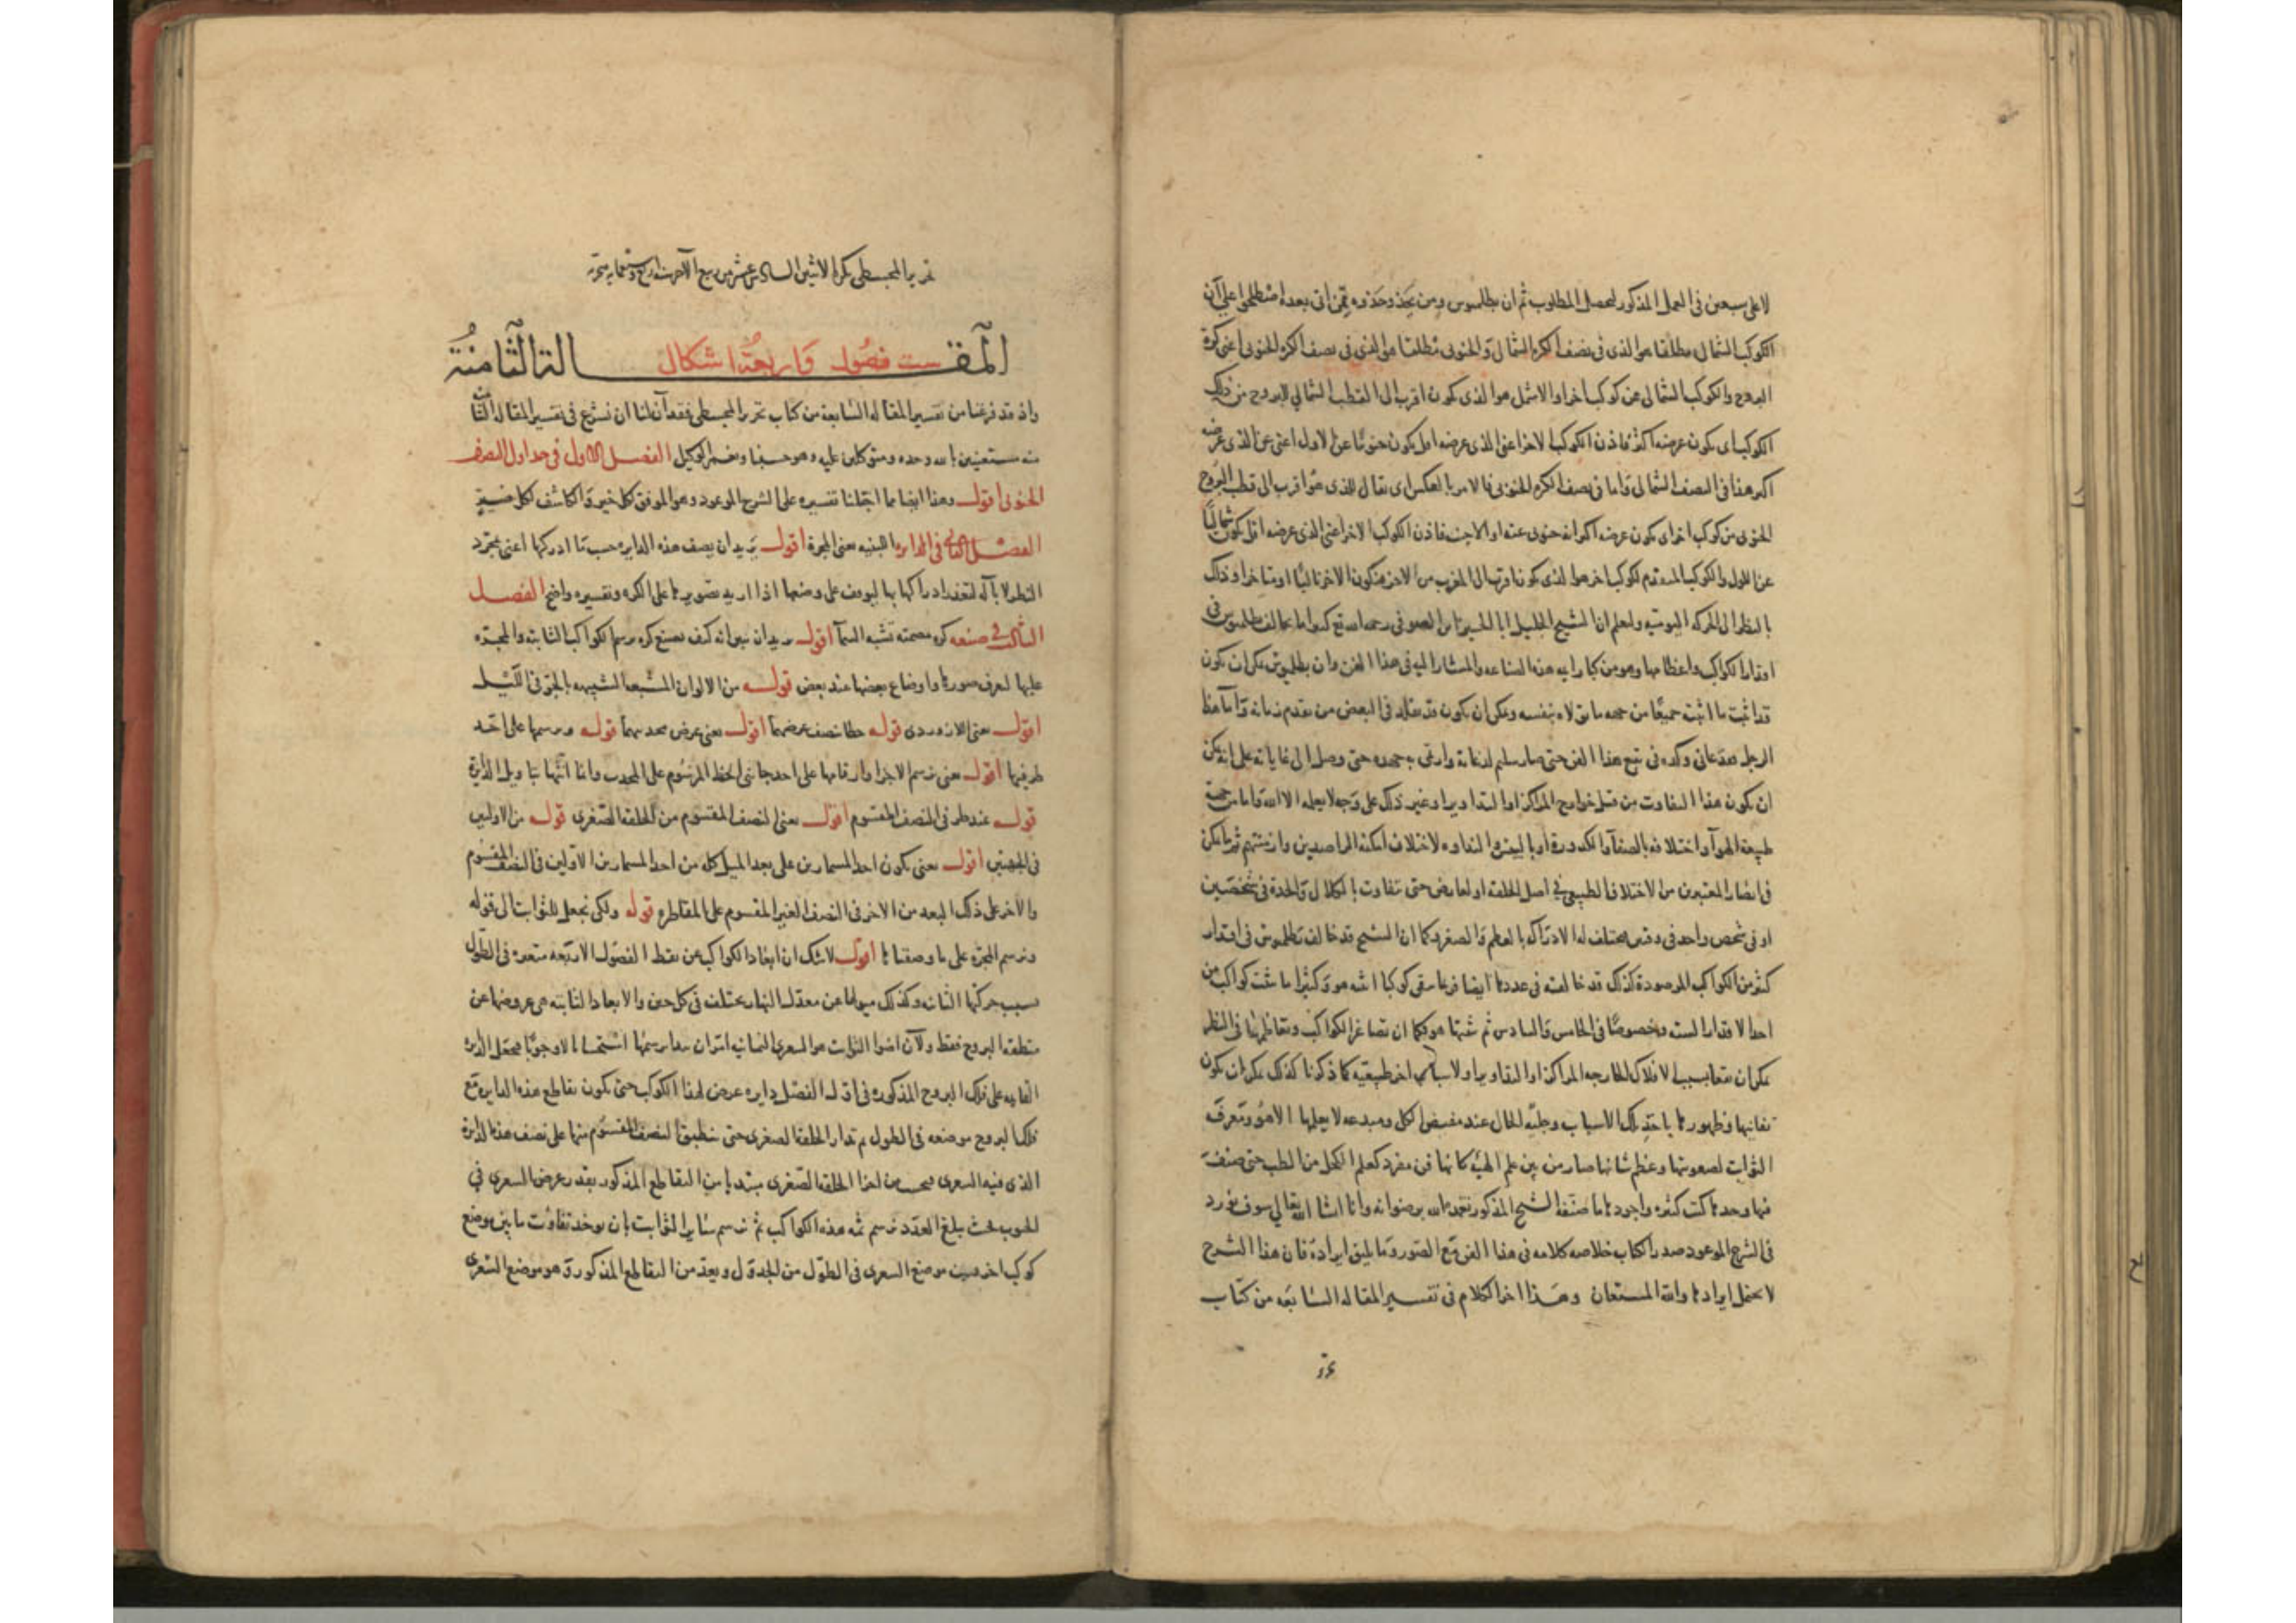 لا على سبعين فى العمل المذكور ليحصل المطلوب ثم ان بطلميوس ومن يحذو حذوه ممن اتى بعده اصطلحوا على ان
الكوكب الشمالى مطلقا هو الذى فى نصف الكرة الشمالى والجنوبى مطلقا هو الذى فى نصف الكرة الجنوبى اعنى كرة
البروج والكوكب الشمالى عن كوكب اخر او الاشمل هو الذى يكون اقرب الى القطب الشمالى للبروج من ذلك
الكوكب اى يكون عرضه اكثر فاذن الكوكب الاخر اعنى الذى عرضه اقل يكون جنوبيا عن الاول اعنى عن الذى عرضه
اكثر هذا فى النصف الشمالى واما فى نصف الكرة الجنوبى فالامر بالعكس اى يقال للذى هو اقرب الى قطب البروج
الجنوبى من كوكب اخر اى يكون عرضه اكثر انه جنوبى عنه او الاجنب فاذن الكوكب الاخر اعنى الذى عرضه اقل يكون شماليا
عن الاول والكوكب المتقدم لكوكب اخر هو الذى يكون اقرب الى المغرب من الاخر فيكون الاخر تاليا او متاخرا وذلك
بالنظر الى الحركة اليومية واعلم ان الشيخ الجليل ابا الحسين الصوفى رحمه الله تع كثيرا ما يخالف بطلميوس فى
اقدار الكواكب واعظامها وهو من كبار هذه الصناعة والمشار اليه فى هذا الفن وان بطلميوس يمكن ان يكون
قد اثبت ما اثبت جميعا من جهة ما تولاه بنفسه ويمكن ان يكون قد قلد فى البعض من تقدم زمانه واما هذا
الرجل فقد عانى وكده فى تتبع هذا الفن حتى صار سليم لذعاته وارقى به جهده حتى وصل الى غاياته على انه يمكن
ان يكون هذا التفاوت من قبل خوارج المراكز او التداوير او غير ذلك على وجه لا يعلمه الا الله واما من جهة
طبيعة الهوآ واختلافه بالصفآ والكدورة او لاختلاف امكنة الراصدين وازمنتهم ثم يمكن
فى ابصار المعتبرين من الاختلاف الطبيعى فى اصل الخلقة او لعارض حتى تفاوت بالكلال والحدة فى شخصين
او فى شخص واحد فى وقتين مختلف له الادراك بالعظم والصغر وكما ان الشيخ قد خالف بطلميوس فى اقدار
كثير من الكواكب المرصودة كذلك قد خالفه فى عددها ايضا فربما بقى كوكبا اثبته هو وكثيرا ما يثبت كواكب من
احد الاقدار الستة وخصوصا فى الخامس والسادس ثم يثبتها هو وكما ان تصاغر الكواكب وتعاظمها فى النظر
يمكن ان يتعلق بسبب الافلاك الخارجة المراكز او التداوير او لاسباب اخر طبيعية كما ذكرنا كذلك يمكن ان يكون
تفانيها وظهورها باحد تلك الاسباب وجلية الحال عند مفيض الكل ومبدعه لا يعلمها الا هو وتعرف
الثوابت لصعوبتها وعظم شانها صار من بين علم الهيئة كانها فن مفرد كعلم الكحل من الطب حتى صنف
فيها وحدها كتب كثيرة واجودها ما صنفه الشيخ المذكور تغمده الله برضوانه وانا ان شا الله تعالى سوف نورد
فى الشرح الموعود صدر الكتاب خلاصة كلامه فى هذا الفن مع الصور وما يليق ايراده فان هذا الشرح
لا يحتمل ايرادها والله المستعان وهذا اخر الكلام فى تفسير المقالة السابعة من كتاب
تحرير المجسطى بكرة الاثنين السادس عشر من ربيع الآخر سنة اربع وستمايه هجريه
المقالة الثامنة ست فصول واربعة اشكال
واذ قد فرغنا من تفسير المقالة السابعة من كتاب تحرير المجسطى فقد آن لنا ان نشرع فى تفسير المقالة الثامنة
منه مستعينين بالله وحده ومتوكلين عليه وهو حسبنا ونعم الوكيل الفصل الاول فى جداول النصف
الجنوبى اقول وهذا ايضا مما اجلنا تفسيره على الشرح الموعود وهو الموفق لكل خير والكاشف لكل ضير
الفصل الثانى فى الدايرة اللبنيه يعنى المجرة اقول يريد ان يصف هذه الدايرة حسب ما ادركها اعنى بمجرد
النظر لا بآلة لتعذر ادراكها بها ليوقف على وضعها اذا اريد تصويرها على الكره وتفسيره واضح الفصل
الثالث فى صنعه كره مصمته تشبه السمآ اقول يريد ان يبين انه كيف نصنع كره يرسم الكواكب الثابتة والمجره
عليها لتعرف صورها واوضاع بعضها عند بعض قوله من الالوان المشبعه الشبيهه بالجو فى الليل
اقول يعنى اللازوردى قوله خطا نصف عرضهما اقول يعنى عرض محدبهما قوله ونرسمها على احد
طرفيها اقول يعنى نرسم الاجزا وارقامها على احد جانبى الخط المرسوم على المحدب وانا ابتها بما ويل الدايرة
قوله عند طرفى النصف المقسوم اقول يعنى النصف المقسوم من الحلقة الصغرى قوله من الاولين
فى الجهتين اقول يعنى يكون احد المسمارين على بعد الميل كله من احد المسمارين الاولين فى النصف المقسوم
والآخر على ذلك البعد من الاخر فى النصف الغير المقسوم على المقاطرة قوله ولكى نجعل للثوابت الى قوله
ونرسم المجره على ما وصفناها اقول لا شك ان ابعاد الكواكب عن نقط الفصول الاربعه متغيره فى الطول
بسبب حركتها الثانيه وكذلك ميولها عن معدل النهار يختلف فى كل حين والابعاد الثابته هى عروضها عن
منطقة البروج فقط ولان اضوا الثوابت هو الشعرى اليمانيه نبدا برسمها استحسانا لا وجوبا فنجعل الدايرة
القايمه على فلك البروج المذكوره فى اول الفصل دايره عرض لهذا الكوكب حتى يكون تقاطع هذه الدايره مع
فلك البروج موضعه فى الطول ثم تدار الحلقة الصغرى حتى ينطبق النصف المقسوم منها على نصف هذه الدايرة
الذى فيه الشعرى فيحسب من هذا الحلقه الصغرى مبتديا من التقاطع المذكور بقدر عرض الشعرى فى
الجنوب فحيث بلغ العدد نرسم ثمه هذه الكواكب ثم نرسم سائر الثوابت بان يوخذ تفاوت ما بين موضع
كوكب اخر وبين موضع الشعرى فى الطول من الجدول ويعد من التقاطع المذكور وهو موضع الشعرى